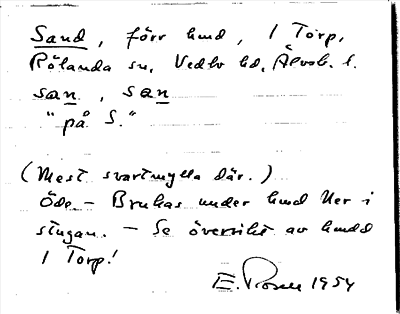 Sand, förr hmd, 1 Torp,
Rölanda sn, Vedbo hd, Älvsb. l.
san, san
"på S."
(Mest svartmylla där.)
Öde. - Brukas under hmd Ner i
stugan. - Se översikt av hmdd
1 Torp!
E. Rosell 1954